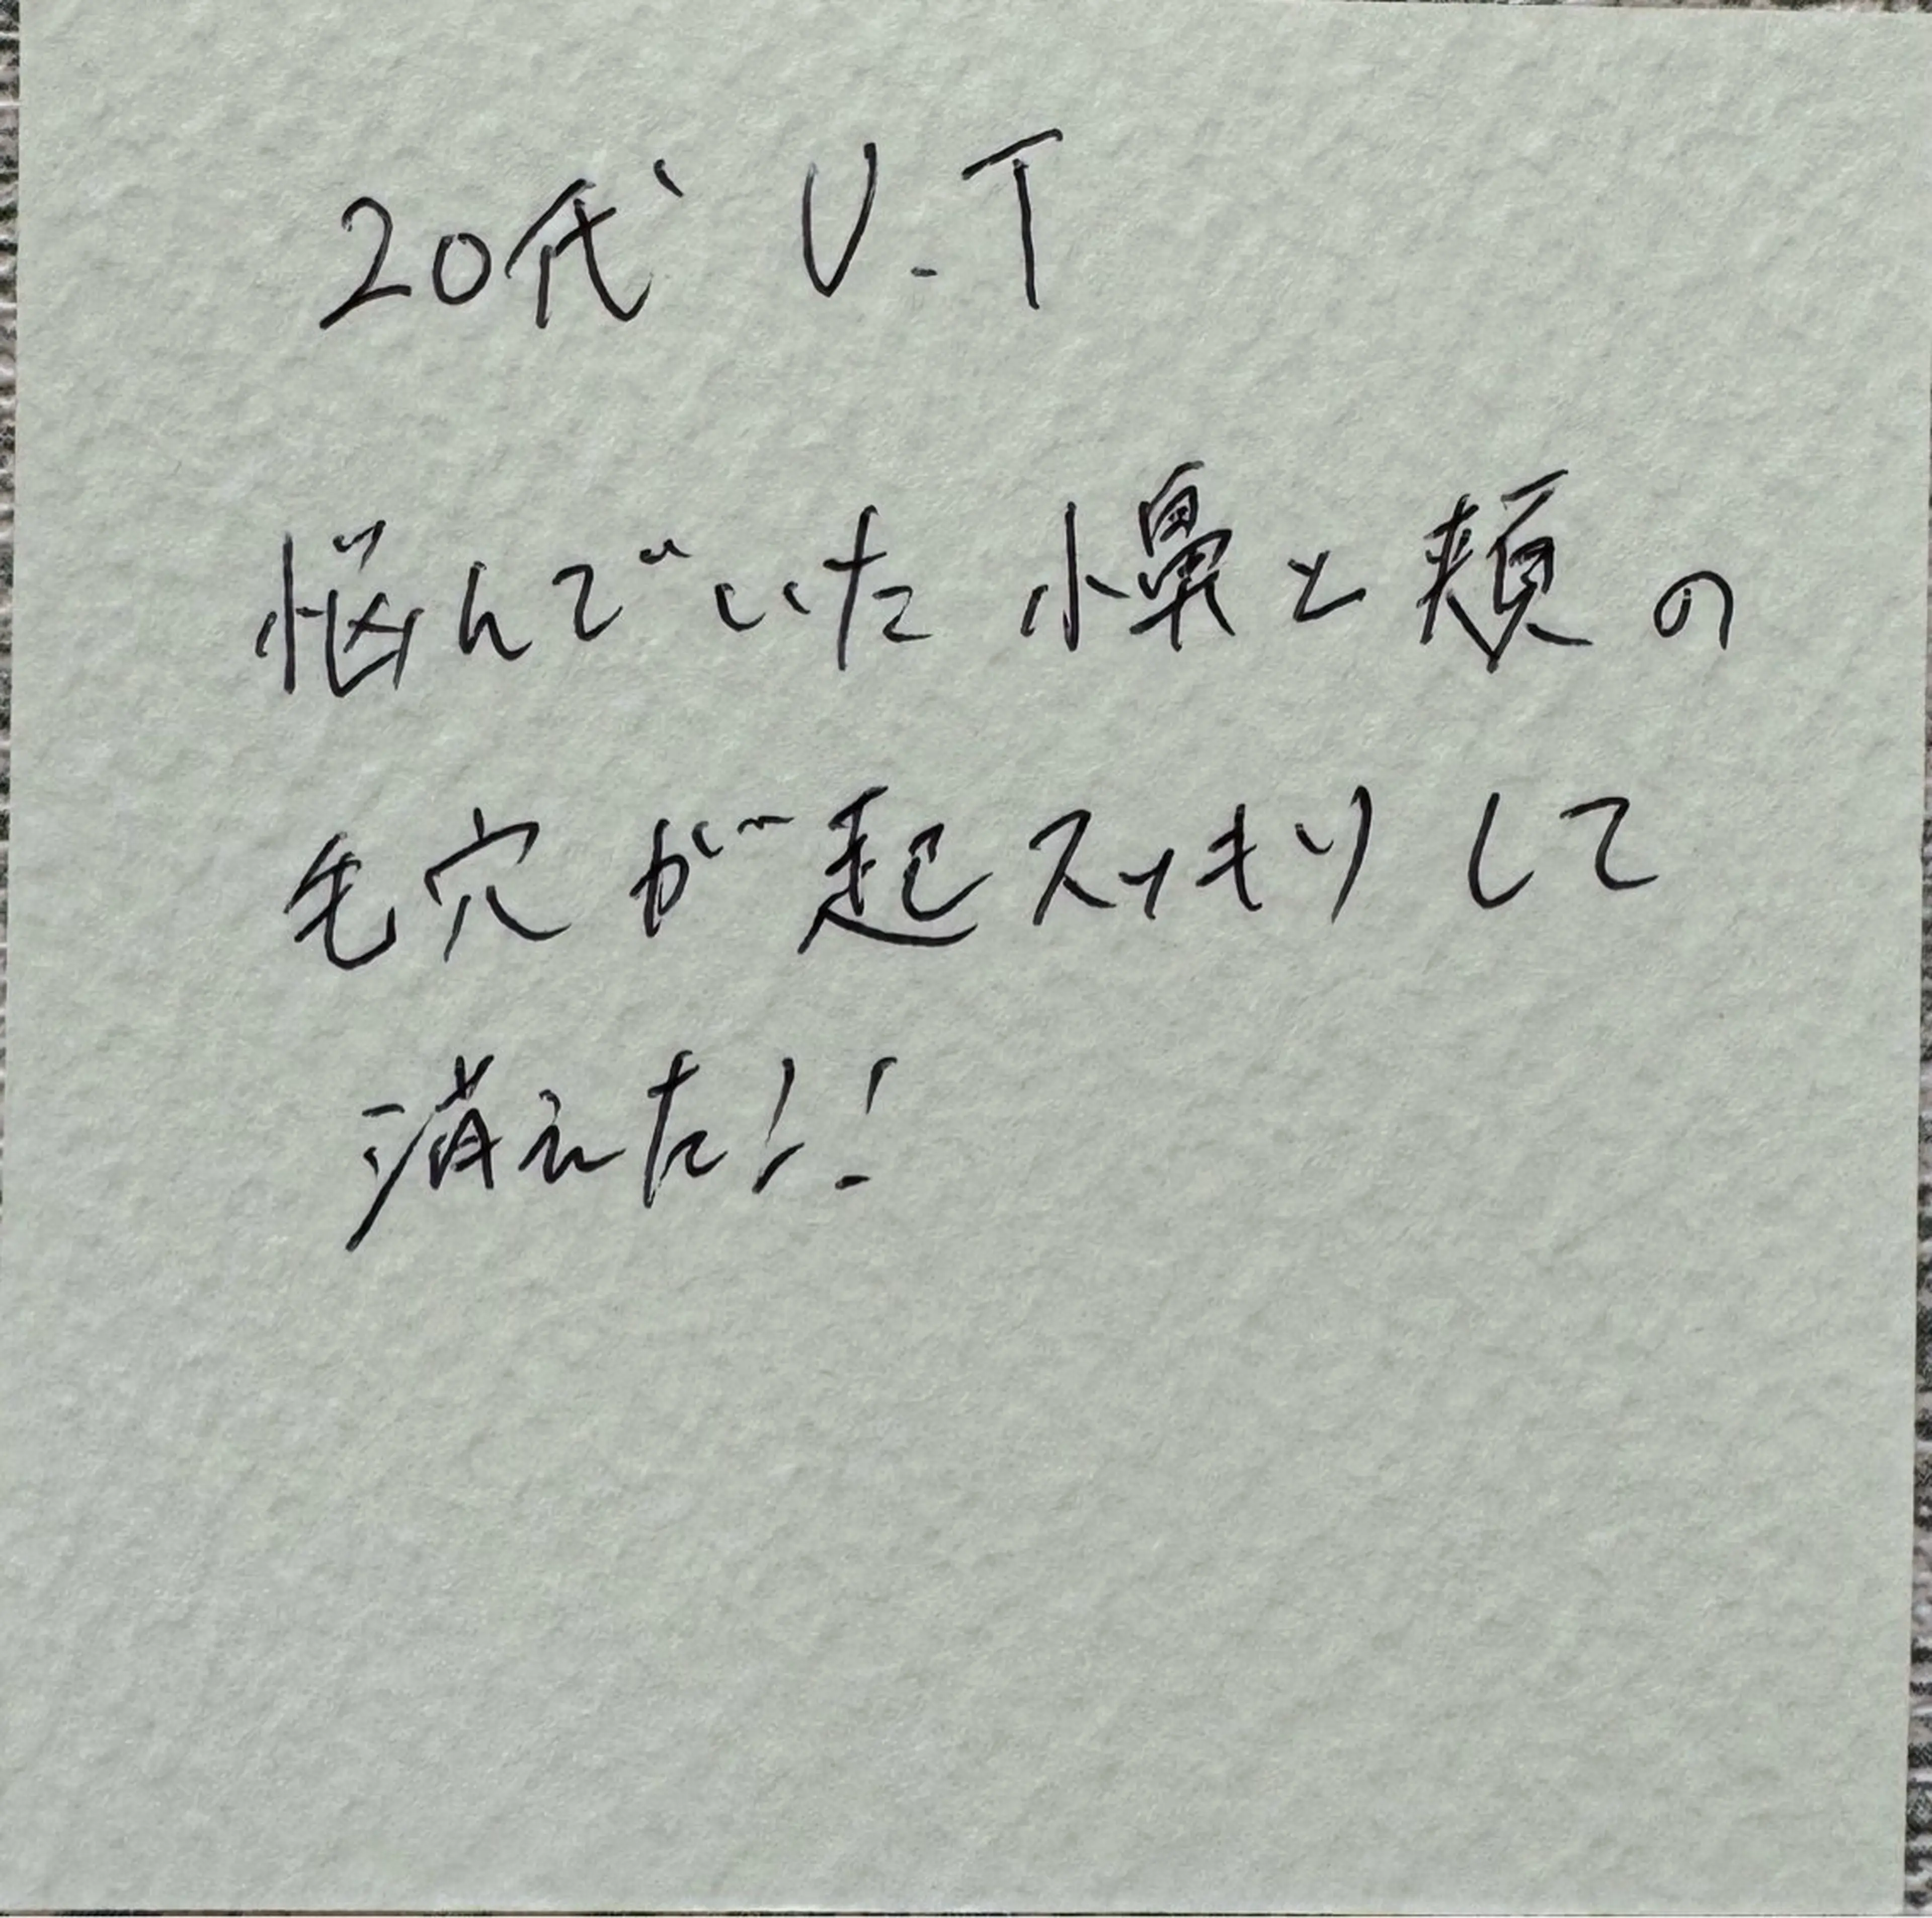 20代 U.T
悩んでいた小鼻と頬の
毛穴が起スッキリして
消えた!!